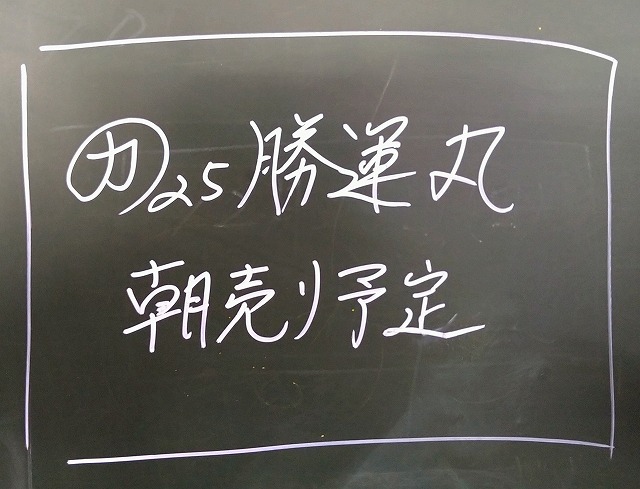 ㋕25勝運丸
朝売り予定